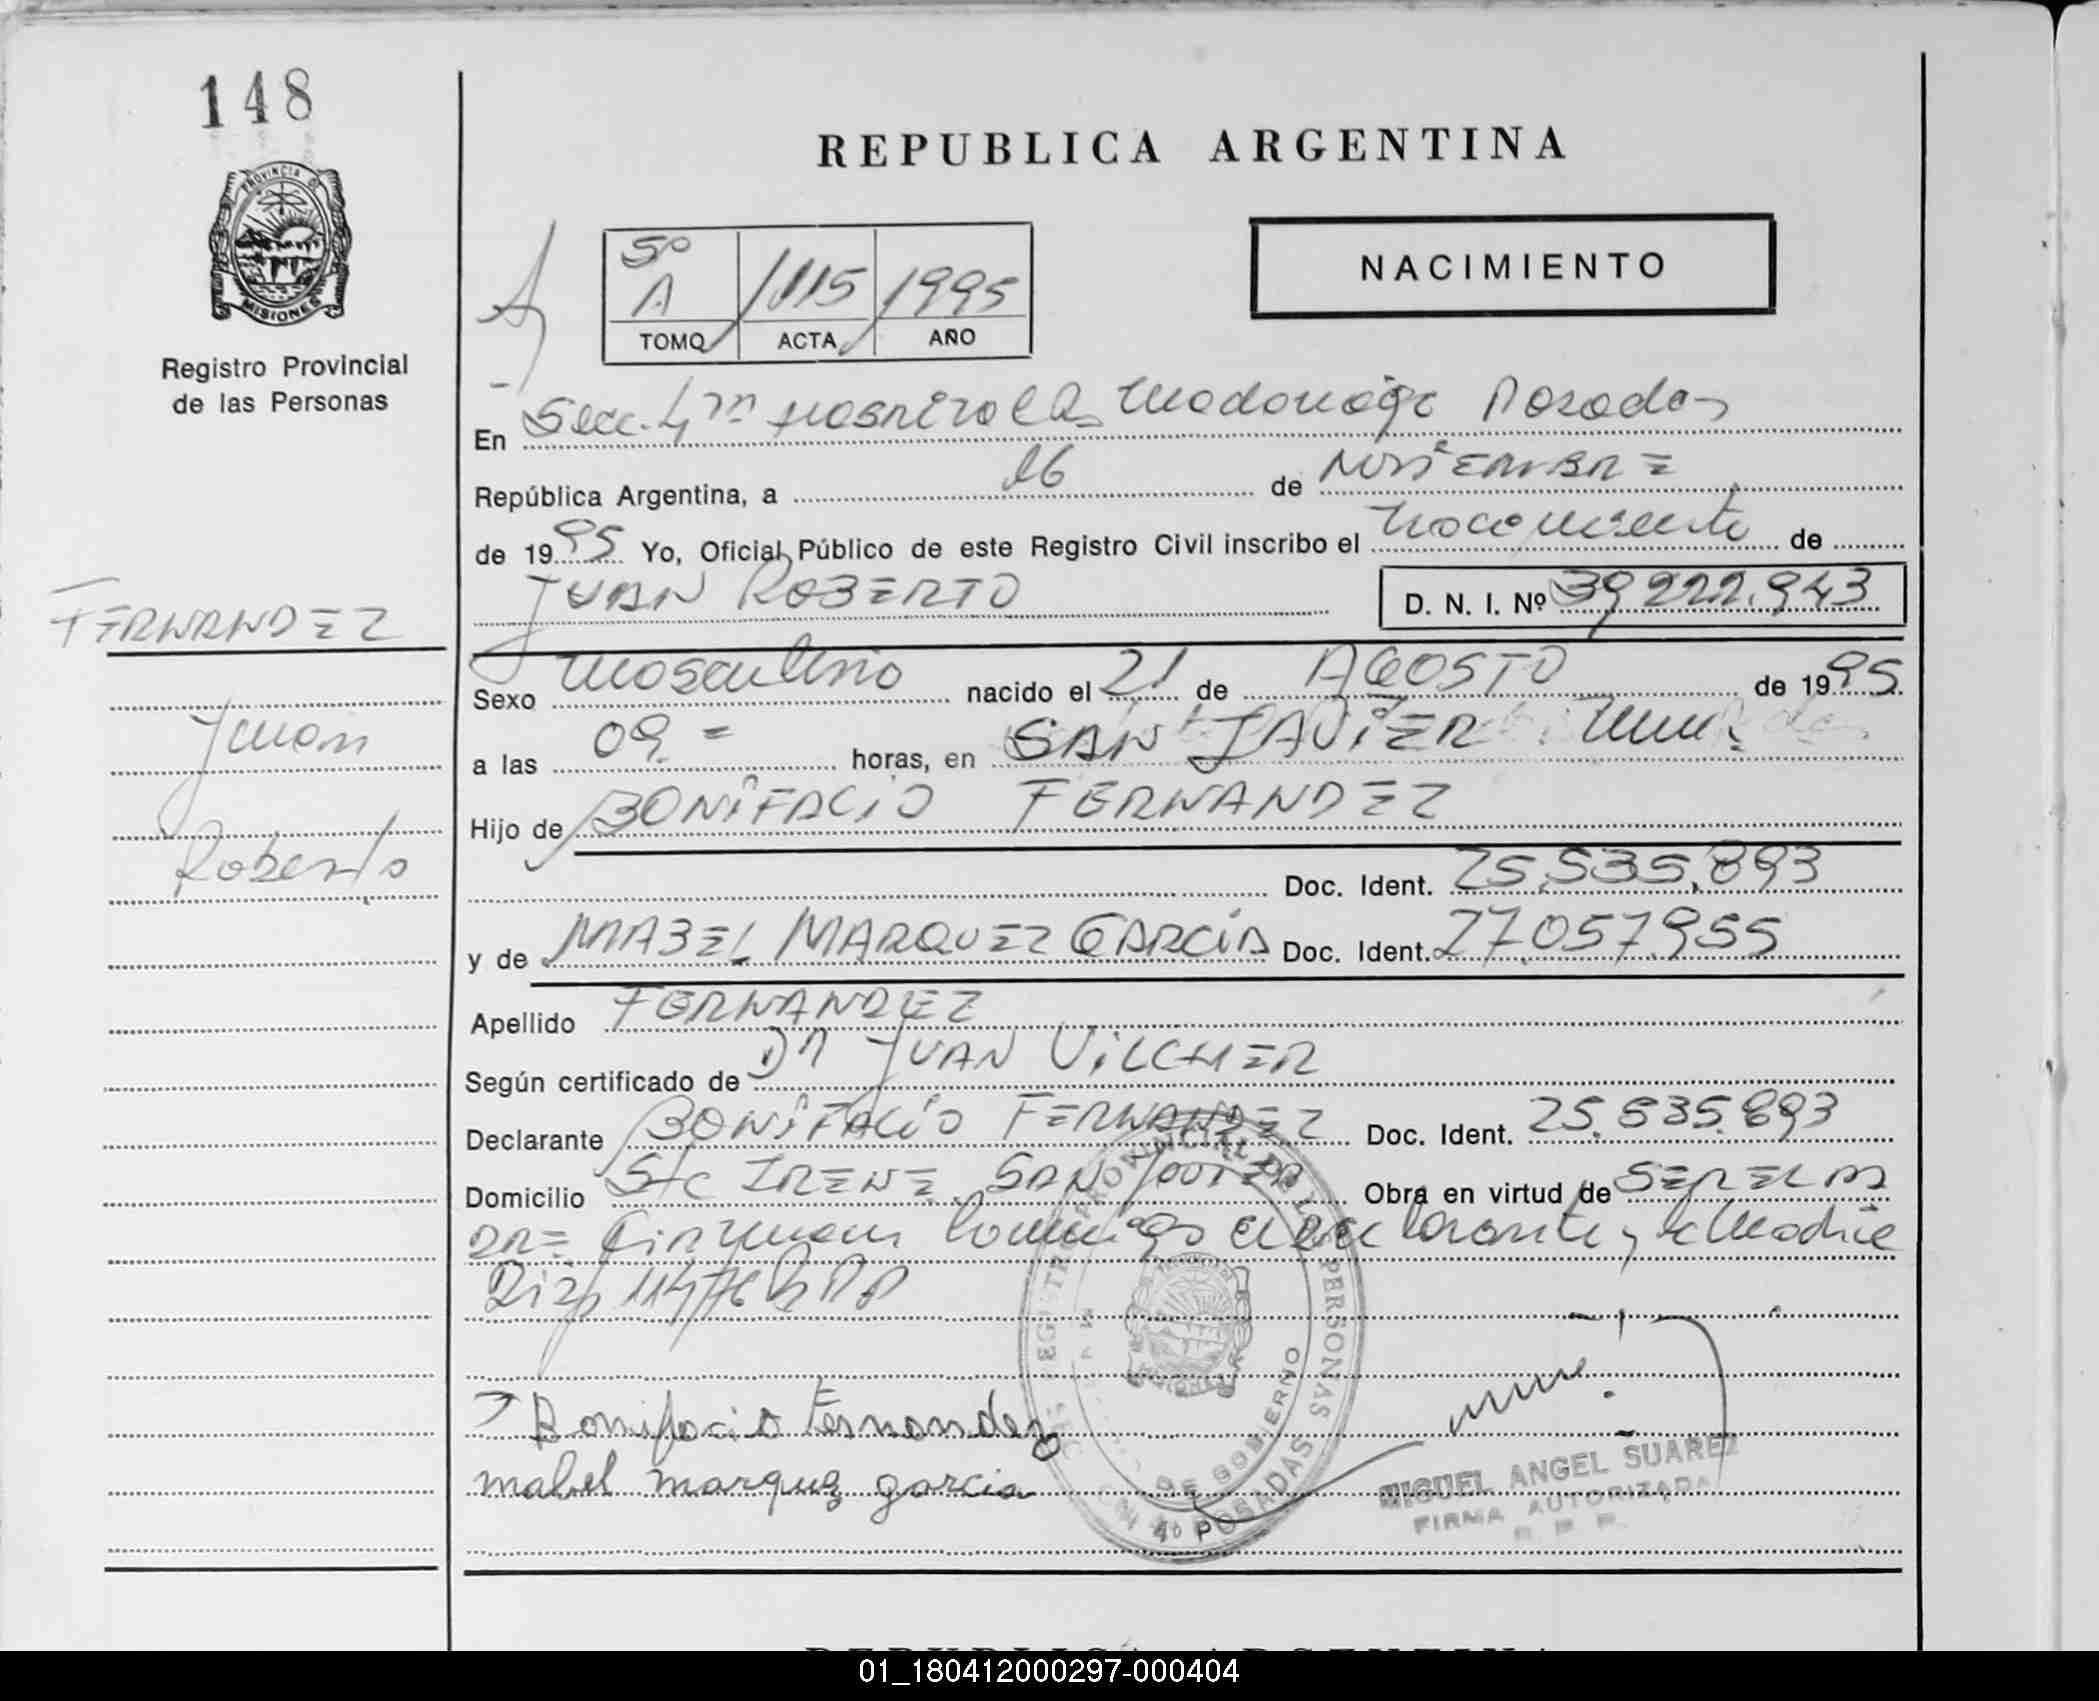 148
PROVINCIA DE
MISIONES
Registro Provincial
de las Personas
FERNANDEZ
Juan
Roberto
REPUBLICA ARGENTINA
NACIMIENTO
5º
A 1115 1995
TOMO ACTA AÑO
En Secc. 4ta Hospital R. Madariaga Posadas
República Argentina, a 16 de NOVIEMBRE
de 1995 Yo, Oficial Público de este Registro Civil inscribo el nacimiento de
JUAN ROBERTO D. N. I. Nº 39.222.943
Sexo masculino nacido el 21 de AGOSTO de 1995
a las 09 = horas, en SAN JAVIER
Hijo de BONIFACIO FERNANDEZ
Doc. Ident. 25.535.893
y de MABEL MARQUEZ GARCÍA Doc. Ident. 27.057.955
Apellido FERNANDEZ
Según certificado de DR JUAN VILCHER
Declarante BONIFACIO FERNANDEZ Doc. Ident. 25.535.893
Domicilio S/C IRENE SAN JAVIER Obra en virtud de SER EL PA
DRE Firman conmigo el declarante y la madre
Bonifacio Fernandez
mabel marquez garcia
REGISTRO PROVINCIAL DE LAS PERSONAS
DE GOBIERNO
POSADAS
MIGUEL ANGEL SUAREZ
FIRMA AUTORIZADA
01_180412000297-000404